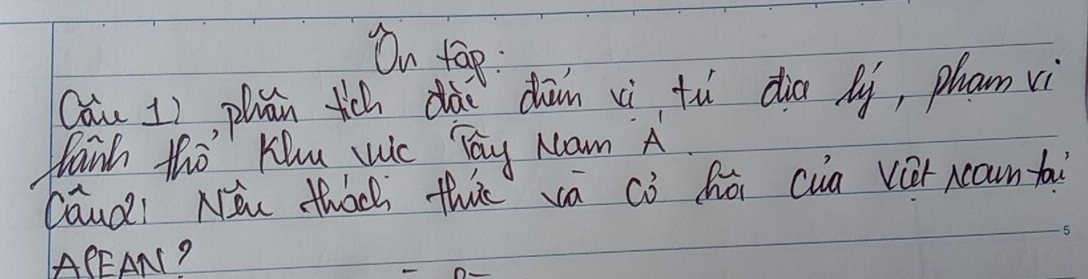 Ôn tập:
Câu 1) phân tích đặc điểm vị trí địa lý, phạm vi
lãnh thổ khu vực Tây Nam Á.
Câu 2: Nêu thách thức và cơ hội của Việt Nam tại
ASEAN?